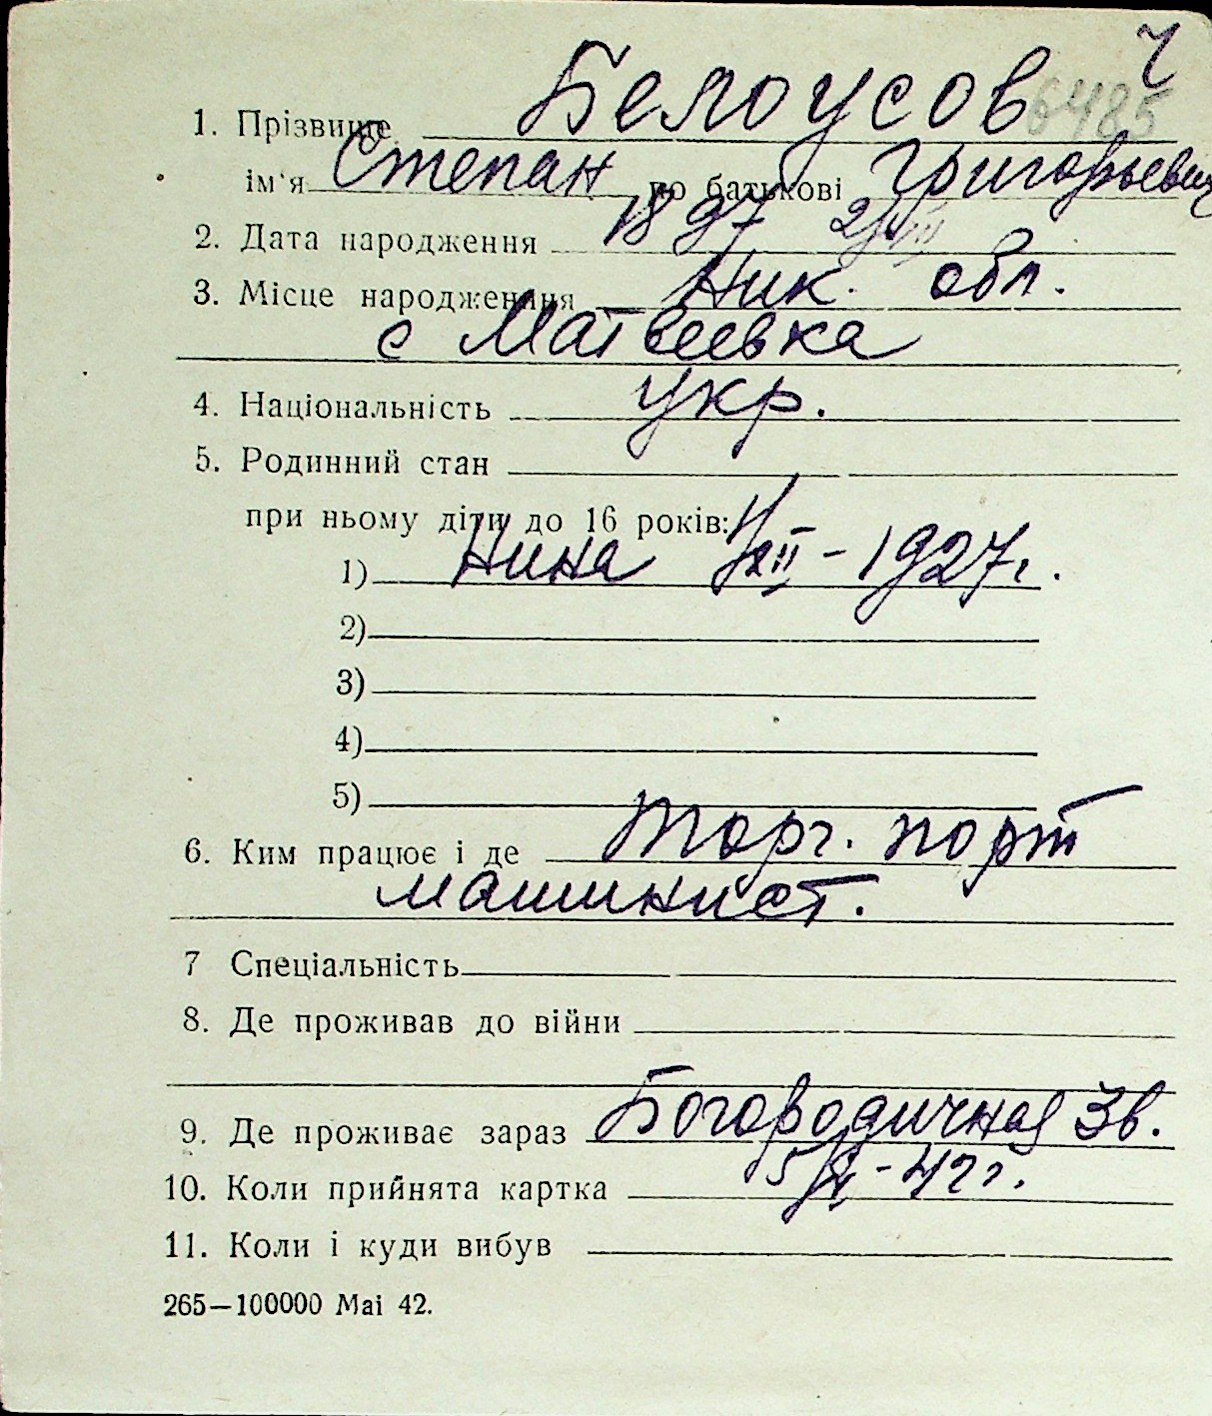 ч
1. Прізвище Белоусов 6485
ім'я Степан по батькові Григорьевич
2. Дата народження 1897 2/VIII
3. Місце народження Ник. обл.
с Матвеевка
4. Національність укр.
5. Родинний стан
при ньому діти до 16 років:
1) Нина 1/XII - 1927 г.
2)
3)
4)
5)
6. Ким працює і де торг. порт
машинист.
7 Спеціальність
8. Де проживав до війни
9. Де проживає зараз Богородичная 3в.
10. Коли прийнята картка 5/X - 42 г.
11. Коли і куди вибув
265—100000 Mai 42.